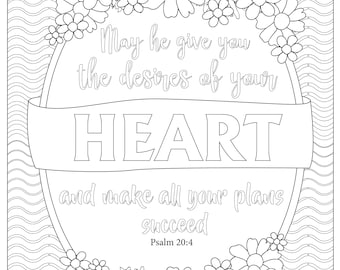 May he give you
the desires of your
HEART
and make all your plans
succeed
Psalm 20:4